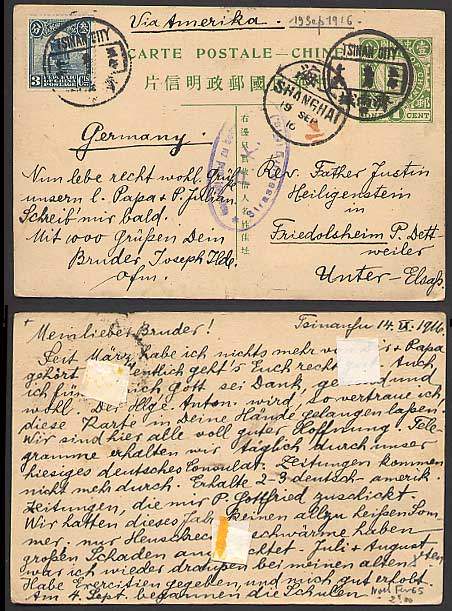 Via Amerika.
19 Sep 1916.
CARTE POSTALE — CHINE
中華民國郵政明信片
3
TSINAN CITY
TSINAN CITY
SHANGHAI
19 SEP
16
CENT
右邊只寫收信人名姓住址
Germany.
Nun lebe recht wohl. Grüße
unsern l. Papa & P. Jillian.
Schreib' mir bald.
Mit 1000 Grüßen Dein
Bruder, Joseph
ofm.
Rev. Father Justin
Heiligenstein
in
Friedolsheim P. Dett-
weiler
Unter-Elsaß.
Mein lieber Bruder!
Tsinanfu 14. IX. 1916.
Seit März habe ich nichts mehr von & Papa
gehört. geht's Euch recht Auch
ich Gott sei Dank, und
wohl. Der Hlg'e Anton. wird, so vertraue ich,
diese Karte in Deine Hände gelangen laßen.
Wir sind hier alle voll guter Hoffnung. Tele-
gramme erhalten wir täglich durch unser
hiesiges deutsches Consulat. Zeitungen kommen
nicht mehr durch. Erhalte 2-3 deutsch-amerik.
Zeitungen, die mir P. Gottfried zuschickt.
Wir hatten dieses keinen allzu heißen Som-
mer, nur haben
großen Schaden Juli & August
war ich wieder draußen bei meinen alten
Habe Exercitien gegeben, und mich gut erholt.
Am 4. Sept. begannen die Schulen